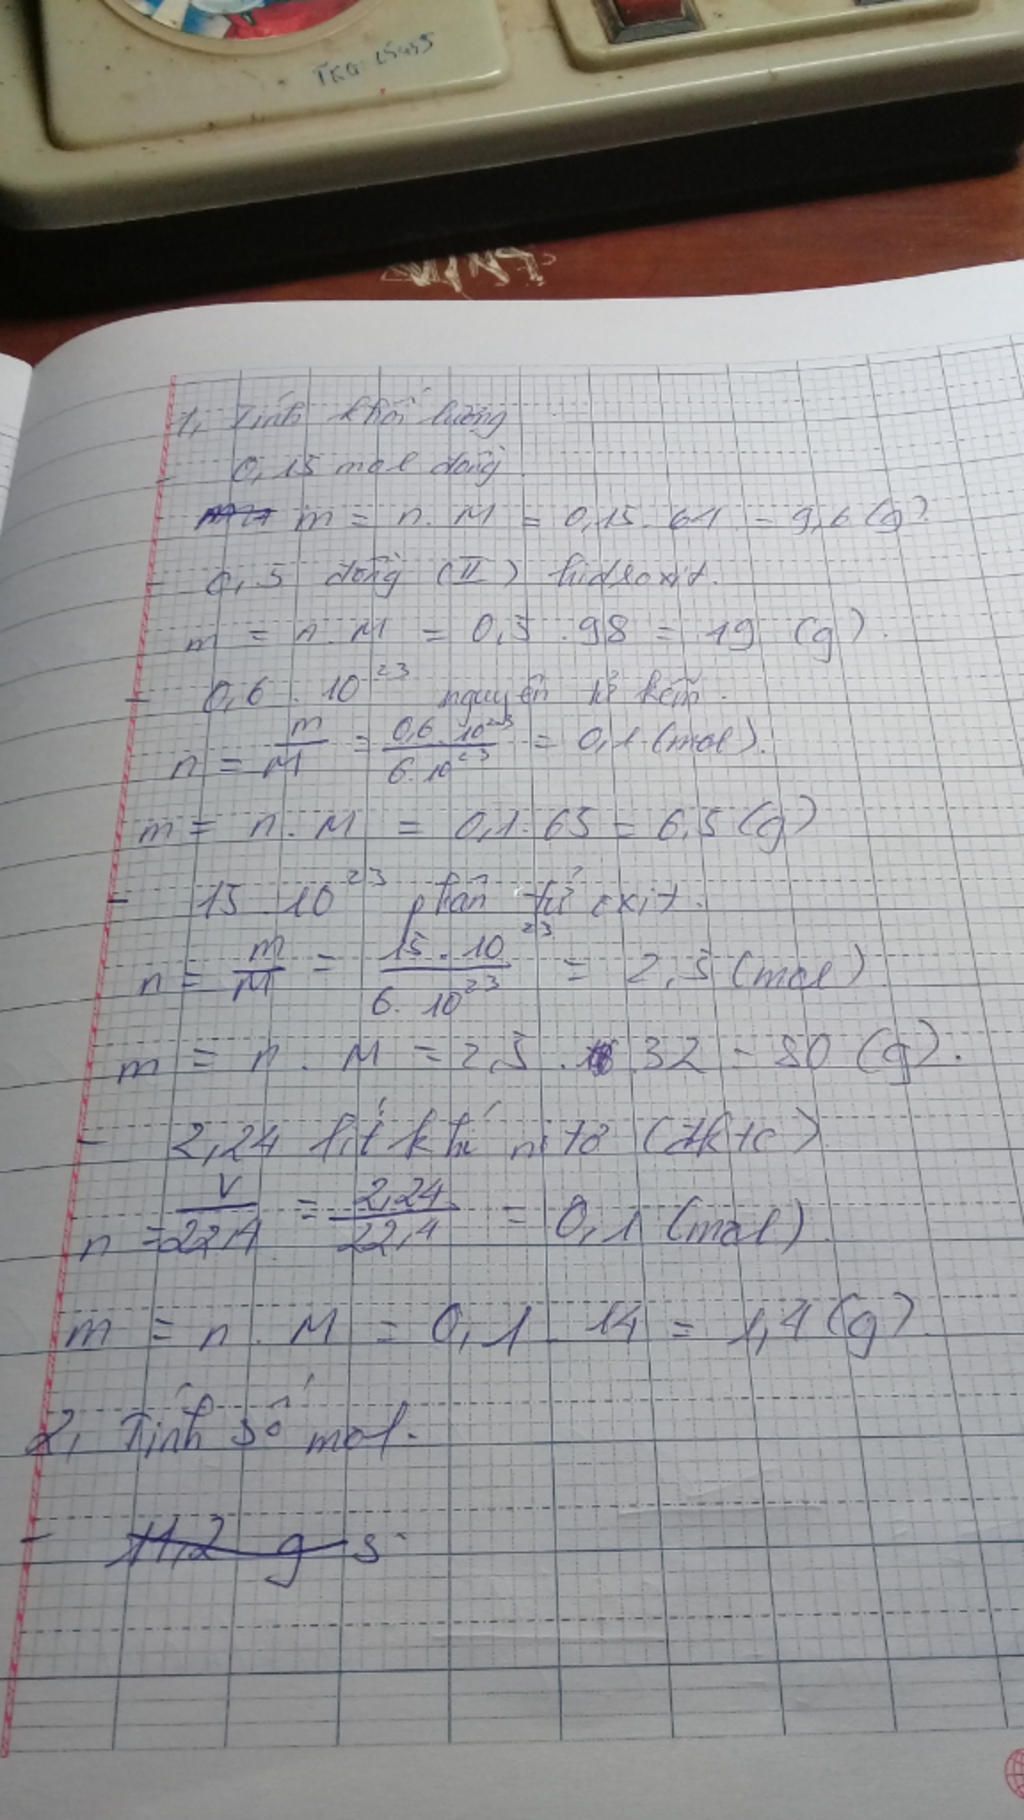 TKG 15455
1, Tính khối lượng
0,15 mol đồng
m = n. M = 0,15. 64 = 9,6 (g).
- 0,5 đồng (II) hidroxit.
m = n. M = 0,5 . 98 = 19 (g).
- 0,6 . 10²³ nguyên tử kẽm.
n = m/M = 0,6. 10²³/6. 10²³ = 0,1 (mol).
m = n. M = 0,1. 65 = 6,5 (g)
- 15. 10²³ phân tử oxit.
n = m/M = 15. 10²³/6. 10²³ = 2,5 (mol)
m = n. M = 2,5 . 32 = 80 (g).
- 2,24 lít khí nitơ (đktc)
n = V/22,4 = 2,24/22,4 = 0,1 (mol).
m = n. M = 0,1. 14 = 1,4 (g).
2, Tính số mol.
- 11,2 g s